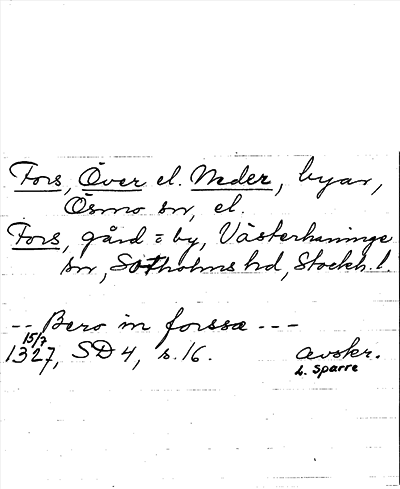 Fors, Över el. Neder, byar,
Ösmo sn, el.
Fors, gård = by, Västerhaninge
sn, Sotholms hd, Stockh. l
-- Bero in forssa ---
15/7
1327, SD 4, s. 16. avskr.
L. Sparre